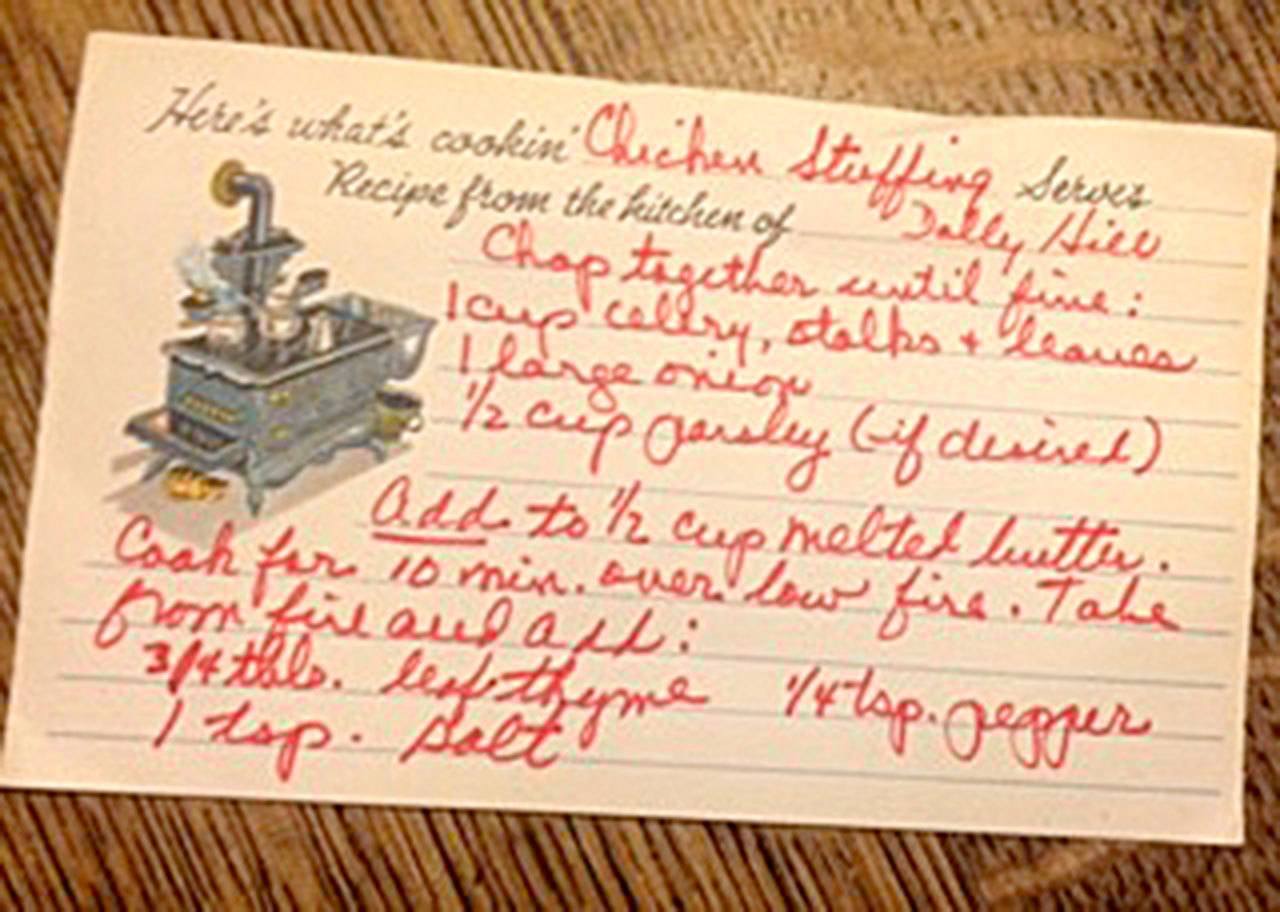 Here's what's cookin' Chicken Stuffing Serves
Recipe from the kitchen of Dolly Hill
Chop together until fine:
1 cup celery, stalks + leaves
1 large onion
1/2 cup parsley (if desired)
Add to 1/2 cup melted butter.
Cook for 10 min. over low fire. Take
from fire and add:
3/4 tbls. leaf thyme 1/4 tsp. pepper
1 tsp. salt